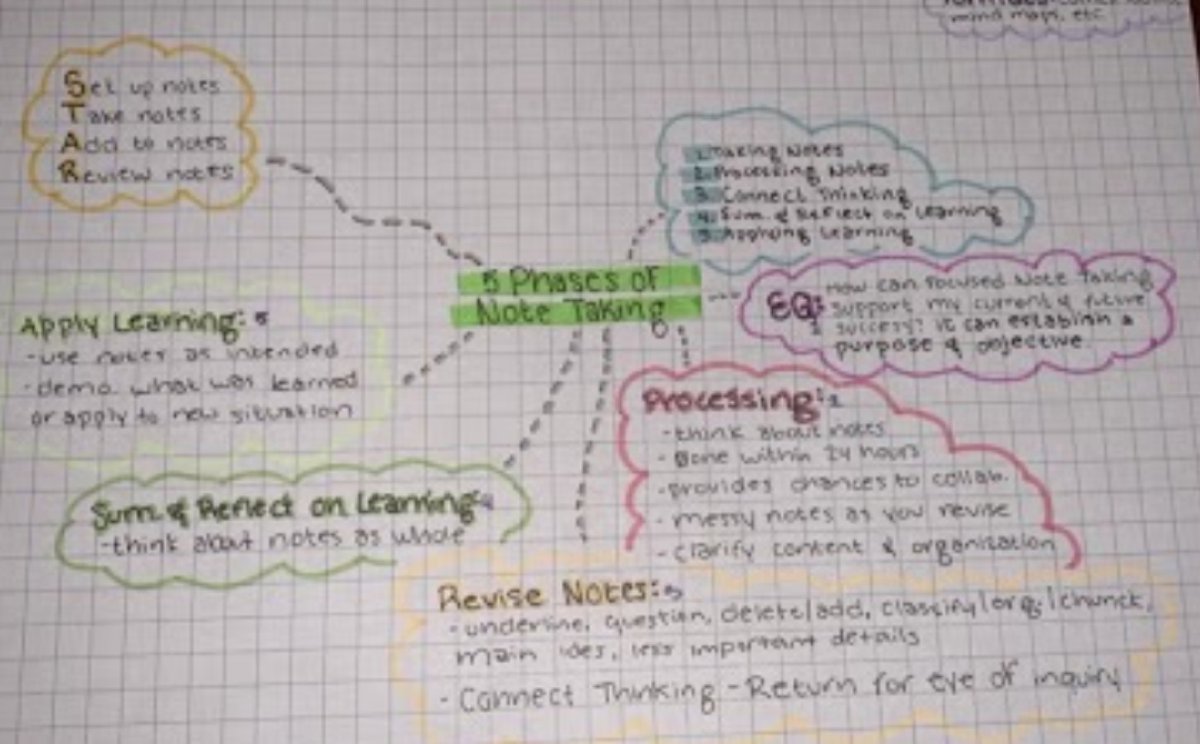 mind maps, etc
Set up notes
Take notes
Add to notes
Review notes
1. Taking Notes
2. Processing Notes
3. Connect Thinking
4. Sum. & Reflect on Learning
5. Applying Learning
5 Phases of
Note Taking
EQ: How can focused Note Taking
support my current & future
success? it can establish a
purpose & objective.
Apply Learning: 5
-use notes as intended
-demo. what was learned
or apply to new situation
Processing: 2
-think about notes
-Done within 24 hours
-provides chances to collab.
-messy notes as you revise
-clarify content & organization
Sum. & Reflect on Learning: 4
-think about notes as whole
Revise Notes:
-underline, question, delete/add, classify/org./chunck,
main ides, less important details
-Connect Thinking -Return for eye of inquiry